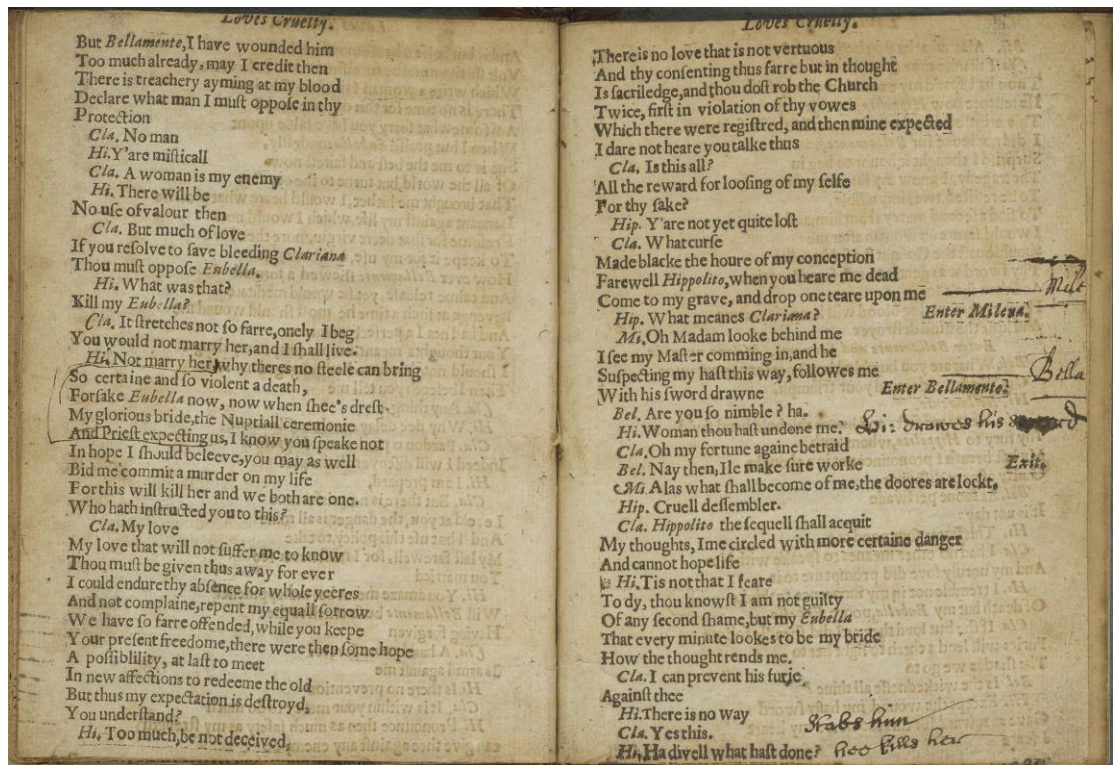 Loves Cruelty.
But Bellamente,I have wounded him
Too much already, may I credit then
There is treachery ayming at my blood
Declare what man I muſt oppoſe in thy
Protection
Cla. No man
Hi.Y'are miſticall
Cla. A woman is my enemy
Hi. There will be
No uſe of valour then
Cla. But much of love
If you reſolve to ſave bleeding Clariana
Thou muſt oppoſe Eubella.
Hi. What was that?
Kill my Eubella?
Cla. It ſtretches not ſo farre,onely I beg
You would not marry her,and I ſhall live.
Hi. Not marry her, why theres no ſteele can bring
So certaine and ſo violent a death,
Forſake Eubella now, now when ſhee's dreſt
My glorious bride,the Nuptiall ceremonie
And Prieſt expecting us, I know you ſpeake not
In hope I ſhould beleeve,you may as well
Bid me commit a murder on my life
For this will kill her and we both are one.
Who hath inſtructed you to this?
Cla. My love
My love that will not ſuffer me to know
Thou muſt be given thus away for ever
I could endure thy abſence for whole yeeres
And not complaine,repent my equall ſorrow
We have ſo farre offended, while you keepe
Your preſent freedome,there were then ſome hope
A poſſiblility, at laſt to meet
In new affections to redeeme the old
But thus my expectation is deſtroyd,
You underſtand?
Hi. Too much,be not deceived,
Loves Cruelty.
There is no love that is not vertuous
And thy conſenting thus farre but in thought
Is ſacriledge,and thou doſt rob the Church
Twice, firſt in violation of thy vowes
Which there were regiſtred, and then mine expected
I dare not heare you talke thus
Cla. Is this all?
All the reward for looſing of my ſelfe
For thy ſake?
Hip. Y'are not yet quite loſt
Cla. What curſe
Made blacke the houre of my conception
Farewell Hippolito,when you heare me dead
Come to my grave, and drop one teare upon me
Mile
Hip. What meanes Clariana? Enter Milena.
Mi.Oh Madam looke behind me
I ſee my Maſter comming in,and he
Suſpecting my haſt this way, followes me
Bella
With his ſword drawne Enter Bellamente.
Bel. Are you ſo nimble? ha.
Hi.Woman thou haſt undone me. Hi: drawes his sword
Cla.Oh my fortune againe betraid
Bel. Nay then, Ile make ſure worke Exit.
Mi. Alas what ſhall become of me,the doores are lockt.
Hip. Cruell deſſembler.
Cla. Hippolito the ſequell ſhall acquit
My thoughts, Ime circled with more certaine danger
And cannot hope life
Hi.Tis not that I feare
To dy, thou knowſt I am not guilty
Of any ſecond ſhame,but my Eubella
That every minute lookes to be my bride
How the thought rends me.
Cla. I can prevent his furie
Againſt thee
Hi.There is no way
Cla. Yes this. Stabs him
Hi. Ha divell what haſt done? hee kills her